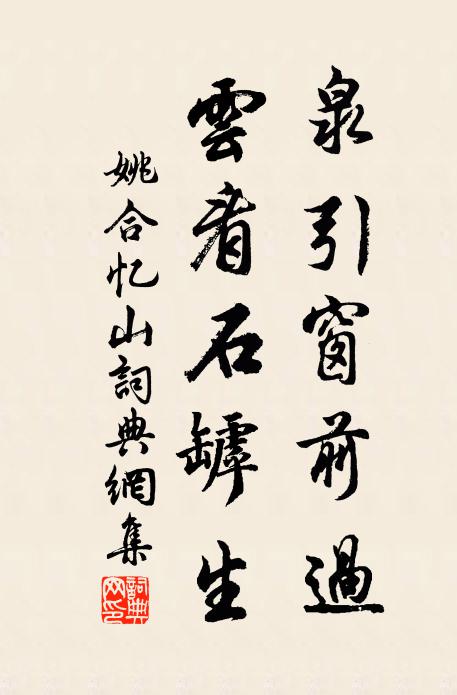 泉引窗前過
雲看石罅生
姚合忆山詞典網集
詞典网印